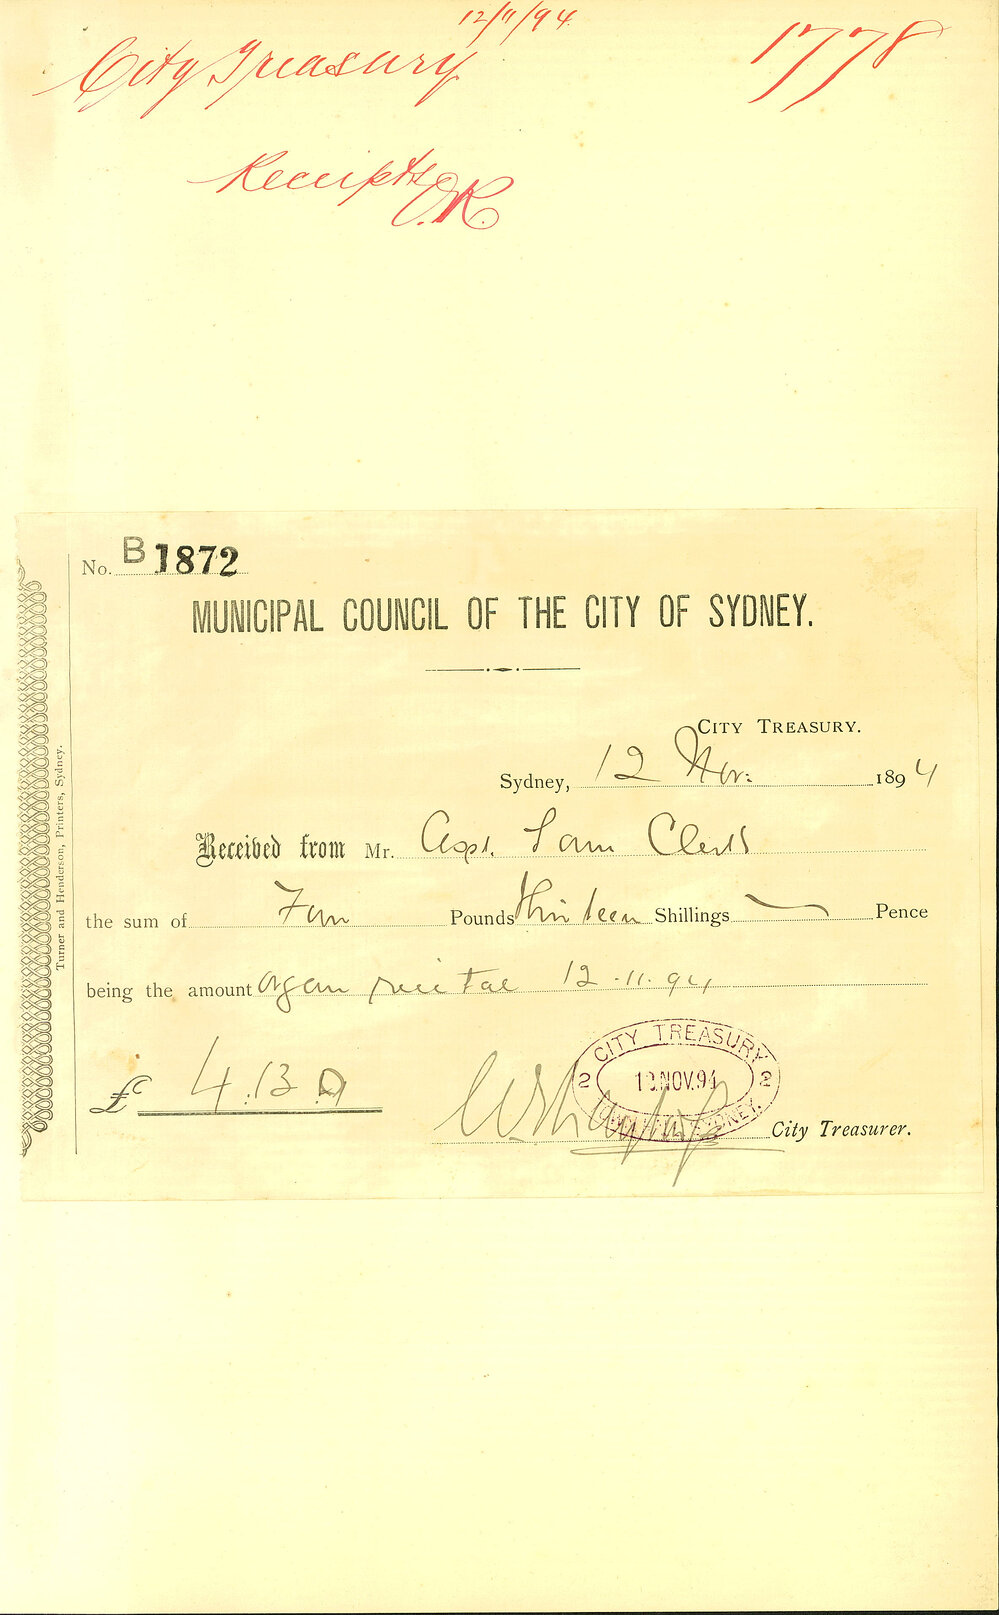 12/11/94
City Treasury
1778
Receipts
O.R.
No. B 1872
MUNICIPAL COUNCIL OF THE CITY OF SYDNEY.
CITY TREASURY.
Sydney, 12 Nov: 1894
Received from Mr. Asst. Town Clerk
the sum of Four Pounds Thirteen Shillings — Pence
being the amount organ recital 12.11.94
£ 4.13.0
CITY TREASURY
2 12 NOV. 94 2
SYDNEY.
City Treasurer.
Turner and Henderson, Printers, Sydney.